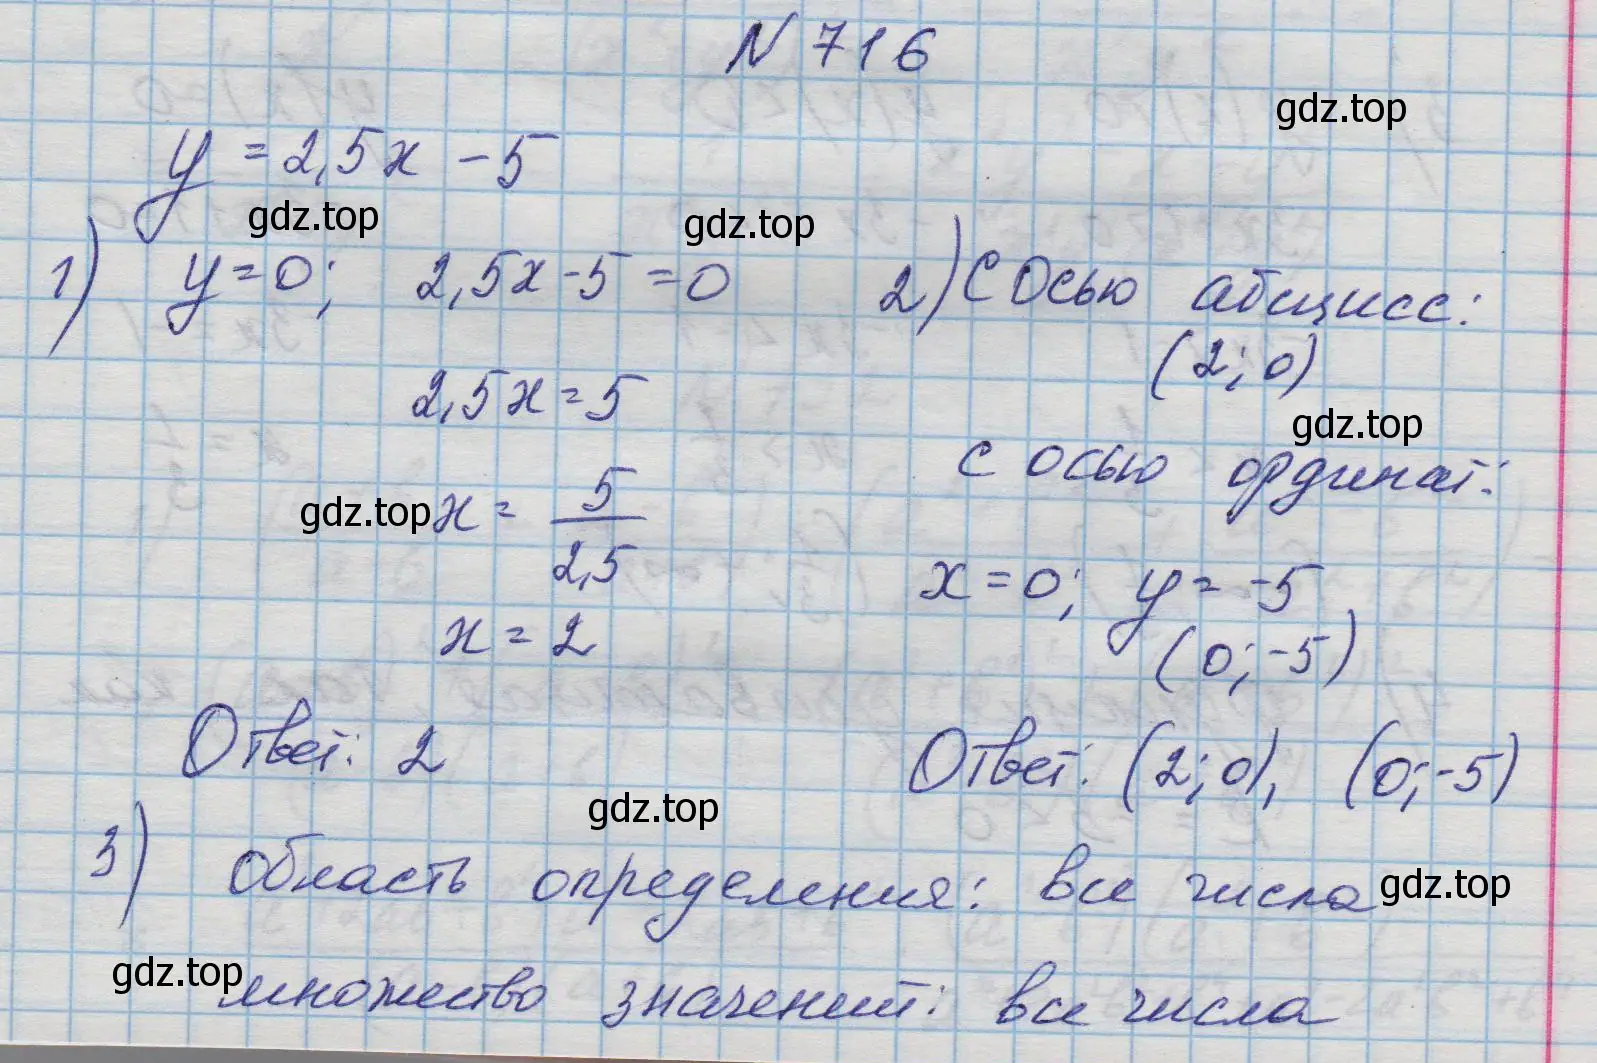 N 716
gdz.top
y = 2,5x - 5
gdz.top gdz.top
1) y = 0; 2,5x - 5 = 0
2,5x = 5
gdz.top x = 5/2,5
x = 2
Ответ: 2
2) С осью абсцисс:
(2; 0)
gdz.top
с осью ординат:
x = 0; y = -5
(0; -5)
Ответ: (2; 0), (0; -5)
gdz.top
3) область определения: все числа
gdz.top
gdz.top
множество значений: все числа